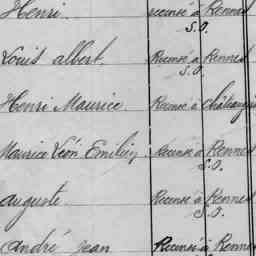 Henri recensé à Rennes
S.O.
Louis Albert, Recensé à Rennes
S.O.
Henri Maurice Recensé à
Maurice Léon Emilien Recensé à Rennes
S.O.
Auguste Recensé à Rennes
S.O.
André Jean Recensé à Rennes